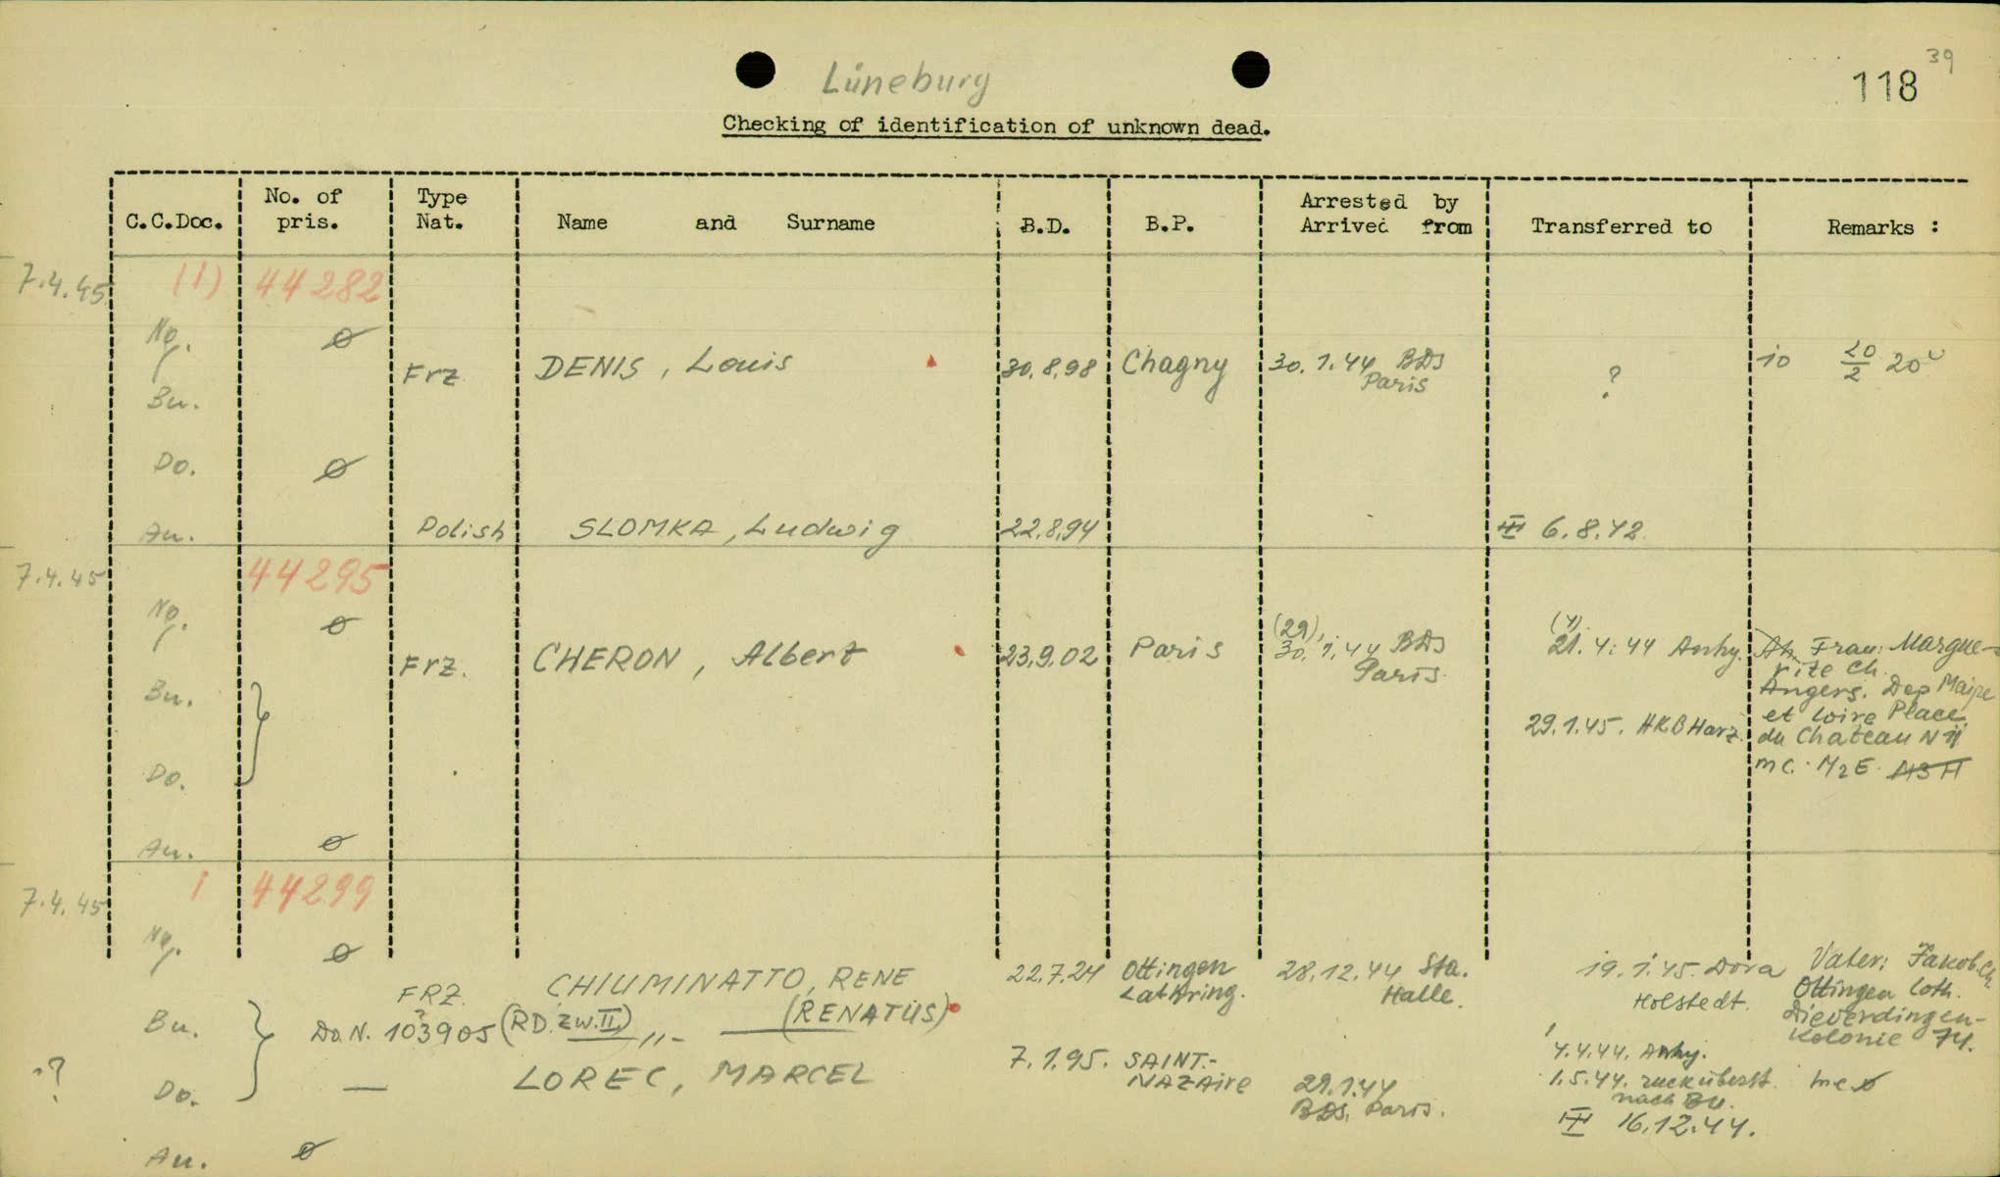 39
Lüneburg
118
Checking of identification of unknown dead.
C.C.Doc. No. of pris. Type Nat. Name and Surname B.D. B.P. Arrested by Arrived from Transferred to Remarks :
7.4.45 (1) 44282
Ng. ø
Frz DENIS, Louis 30.8.98 Chagny 30.1.44 BDS Paris ? 10 20/2 20
Bu.
Do. ø
Au. Polish SLOMKA, Ludwig 22.8.94 6.8.42
7.4.45 44295
Ng. ø
Frz. CHERON, Albert 23.9.02 Paris (29) 30.1.44 BDS Paris 21.4.44 Frau: Margue-
rite Ch.
Bu. Angers. Dep Maine
29.1.45. HKB Harz. et Loire Place
du Chateau N 11
Do. mc. M2E.
Au. ø
7.4.45 1 44299
Ng. ø
FRZ. CHIUMINATTO, RENE 22.7.24 Ottingen Lothring. 28.12.44 Sta. Halle. 19.1.45. Dora Holstedt. Vater: Jakob Ch.
Ottingen Loth.
Bu. Do. N. 103905 (RD. zw. II) „- (RENATUS) Dieverdingen-
Kolonie 74.
? Do. — LOREC, MARCEL 7.1.95. SAINT-NAZAire 29.1.44 BDS. Paris. 4.4.44.
1.5.44. rücküberst. nach Bu. mc ø
16.12.44.
Au. ø